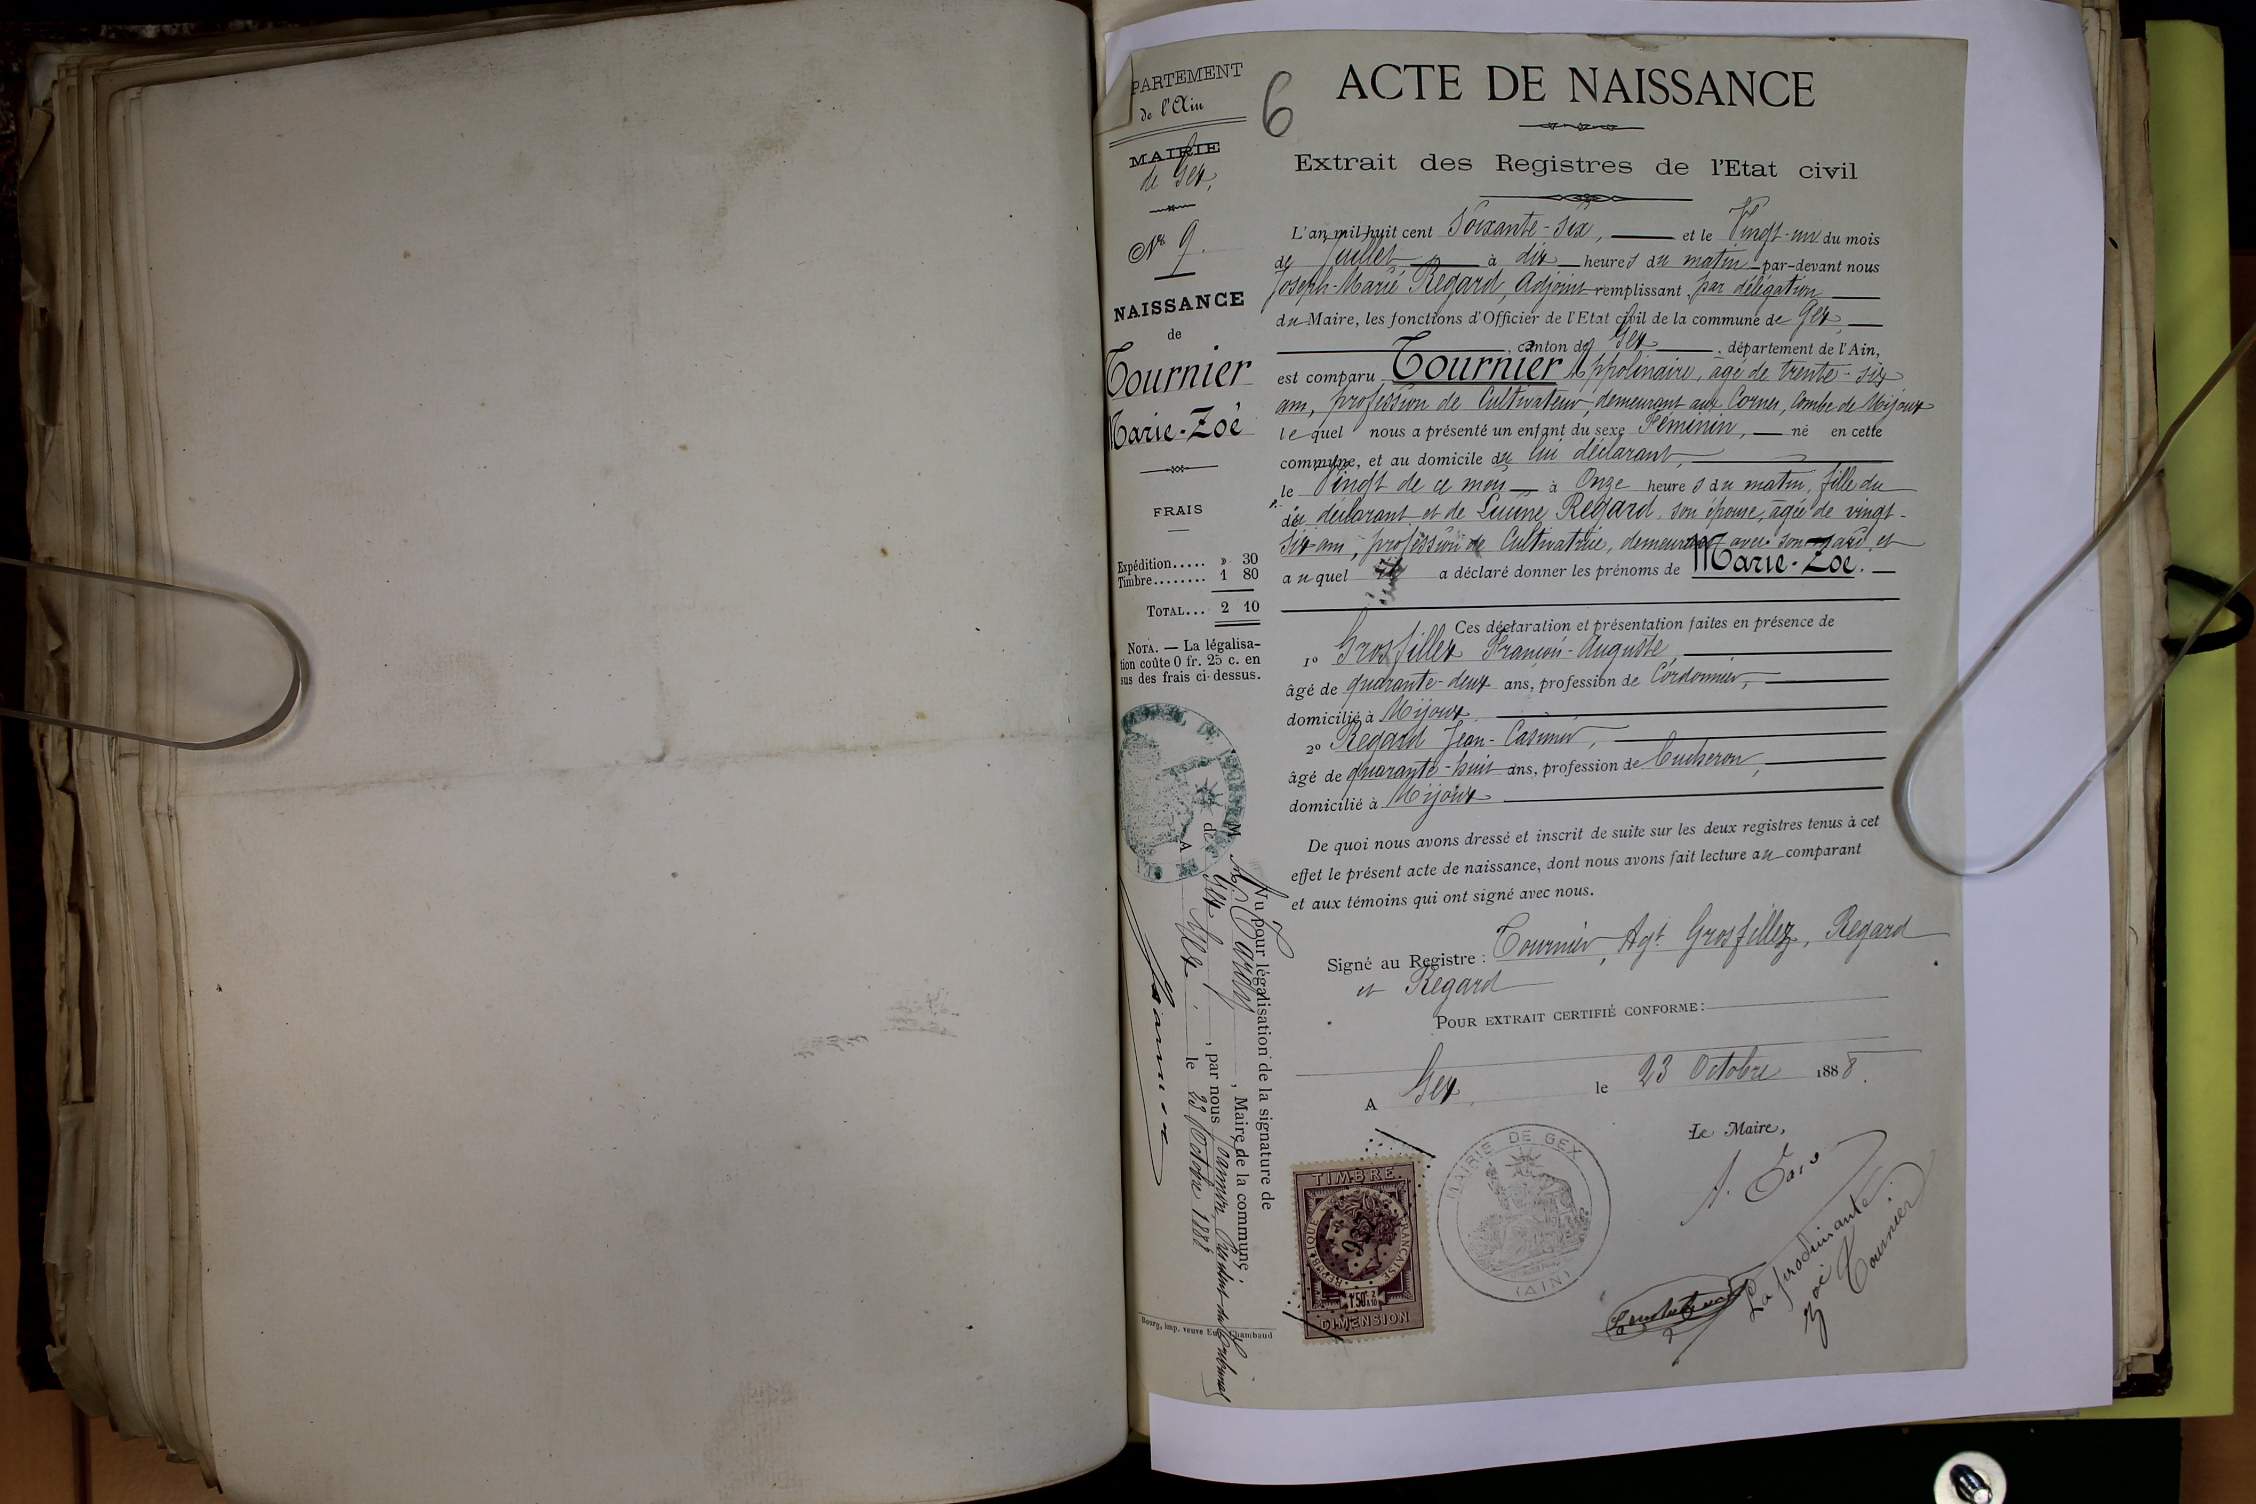 PARTEMENT
de l'Ain
MAIRIE
de Gex,
N° 9.
NAISSANCE
de
Tournier
Marie-Zoé
FRAIS
Expédition..... » 30
Timbre........ 1 80
TOTAL... 2 10
NOTA. — La légalisa-
tion coûte 0 fr. 25 c. en
sus des frais ci-dessus.
Vu pour légalisation de la signature de
M , Maire de la commune
de Gex , par nous Président du Tribunal
A Gex le 23 Octobre 1888
Bourg, imp. veuve Chambaud
6
ACTE DE NAISSANCE
Extrait des Registres de l'Etat civil
L'an mil huit cent Soixante-six, et le Vingt-un du mois
de Juillet à dix heures du matin par-devant nous
Joseph-Marie Regard, Adjoint remplissant par délégation
du Maire, les fonctions d'Officier de l'Etat civil de la commune de Gex,
, canton de Gex , département de l'Ain,
est comparu Tournier Appolinaire, âgé de trente-six
ans, profession de Cultivateur, demeurant aux Cornes, Combe de Mijoux
lequel nous a présenté un enfant du sexe Féminin, né en cette
commune, et au domicile du lui déclarant,
le Vingt de ce mois à Onze heures du matin, fille du
dit déclarant et de Lucine Regard, son épouse, âgée de vingt-
six ans, profession de Cultivatrice, demeurant avec son mari, et
auquel a déclaré donner les prénoms de Marie-Zoé.
Ces déclaration et présentation faites en présence de
1° Grosfillex François-Auguste
âgé de quarante-deux ans, profession de Cordonnier,
domicilié à Mijoux
2° Regard Jean-Casimir,
âgé de quarante-huit ans, profession de Bucheron,
domicilié à Mijoux
De quoi nous avons dressé et inscrit de suite sur les deux registres tenus à cet
effet le présent acte de naissance, dont nous avons fait lecture au comparant
et aux témoins qui ont signé avec nous.
Signé au Registre : Tournier, Agt Grosfillez, Regard
et Regard
POUR EXTRAIT CERTIFIÉ CONFORME:
A Gex, le 23 Octobre 1888.
Le Maire,
MAIRIE DE GEX
(AIN)
TIMBRE
REPUBLIQUE FRANÇAISE
1f50c 2/10
DIMENSION
La
Zoé Tournier